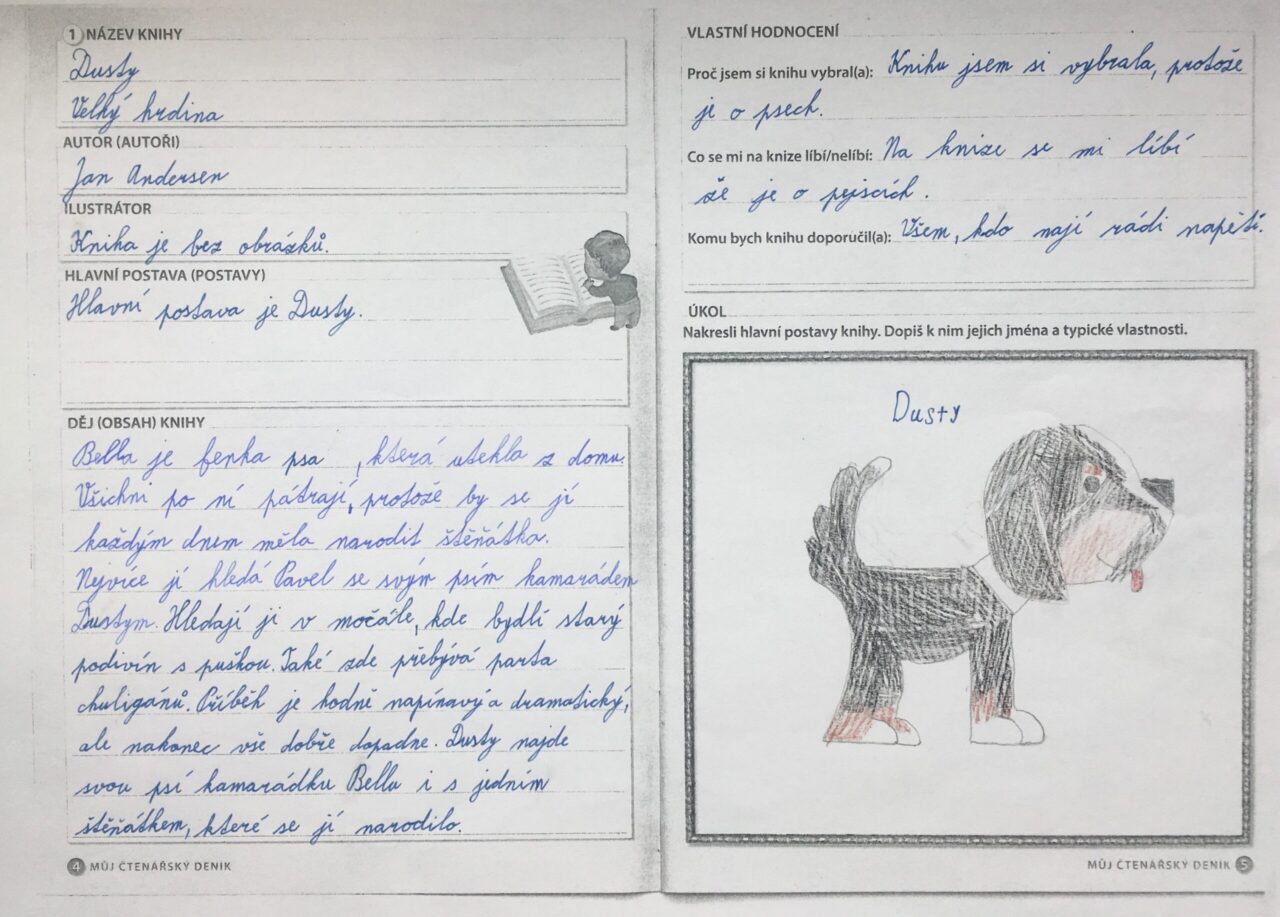 1 NÁZEV KNIHY
Dusty
Velký hrdina
AUTOR (AUTOŘI)
Jan Andersen
ILUSTRÁTOR
Kniha je bez obrázků.
HLAVNÍ POSTAVA (POSTAVY)
Hlavní postava je Dusty.
DĚJ (OBSAH) KNIHY
Bella je fenka psa , která utekla z domu.
Všichni po ní pátrají, protože by se jí
každým dnem měla narodit štěňátka.
Nejvíce jí hledá Pavel se svým psím kamarádem
Dustym. Hledají ji v močále, kde bydlí starý
podivín s puškou. Také zde přebývá parta
chuligánů. Příběh je hodně napínavý a dramatický,
ale nakonec vše dobře dopadne. Dusty najde
svou psí kamarádku Bellu i s jedním
štěňátkem, které se jí narodilo.
4 MŮJ ČTENÁŘSKÝ DENÍK
VLASTNÍ HODNOCENÍ
Proč jsem si knihu vybral(a): Knihu jsem si vybrala, protože
je o psech.
Co se mi na knize líbí/nelíbí: Na knize se mi líbí
že je o pejscích.
Komu bych knihu doporučil(a): Všem, kdo mají rádi napětí.
ÚKOL
Nakresli hlavní postavy knihy. Dopiš k nim jejich jména a typické vlastnosti.
Dusty
MŮJ ČTENÁŘSKÝ DENÍK 5